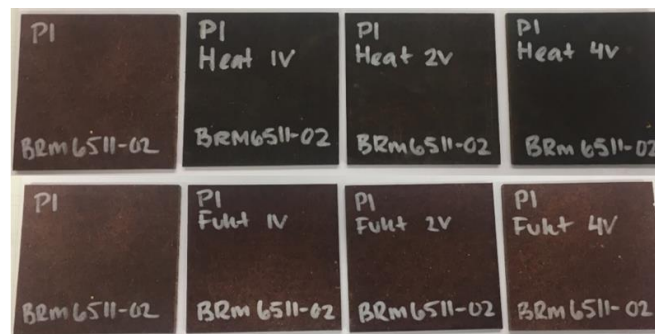 P1
BRM6511-02
P1
Heat 1V
BRM6511-02
P1
Heat 2V
BRM6511-02
P1
Heat 4V
BRM6511-02
P1
BRM6511-02
P1
Fukt 1V
BRM6511-02
P1
Fukt 2V
BRM6511-02
P1
Fukt 4V
BRM6511-02